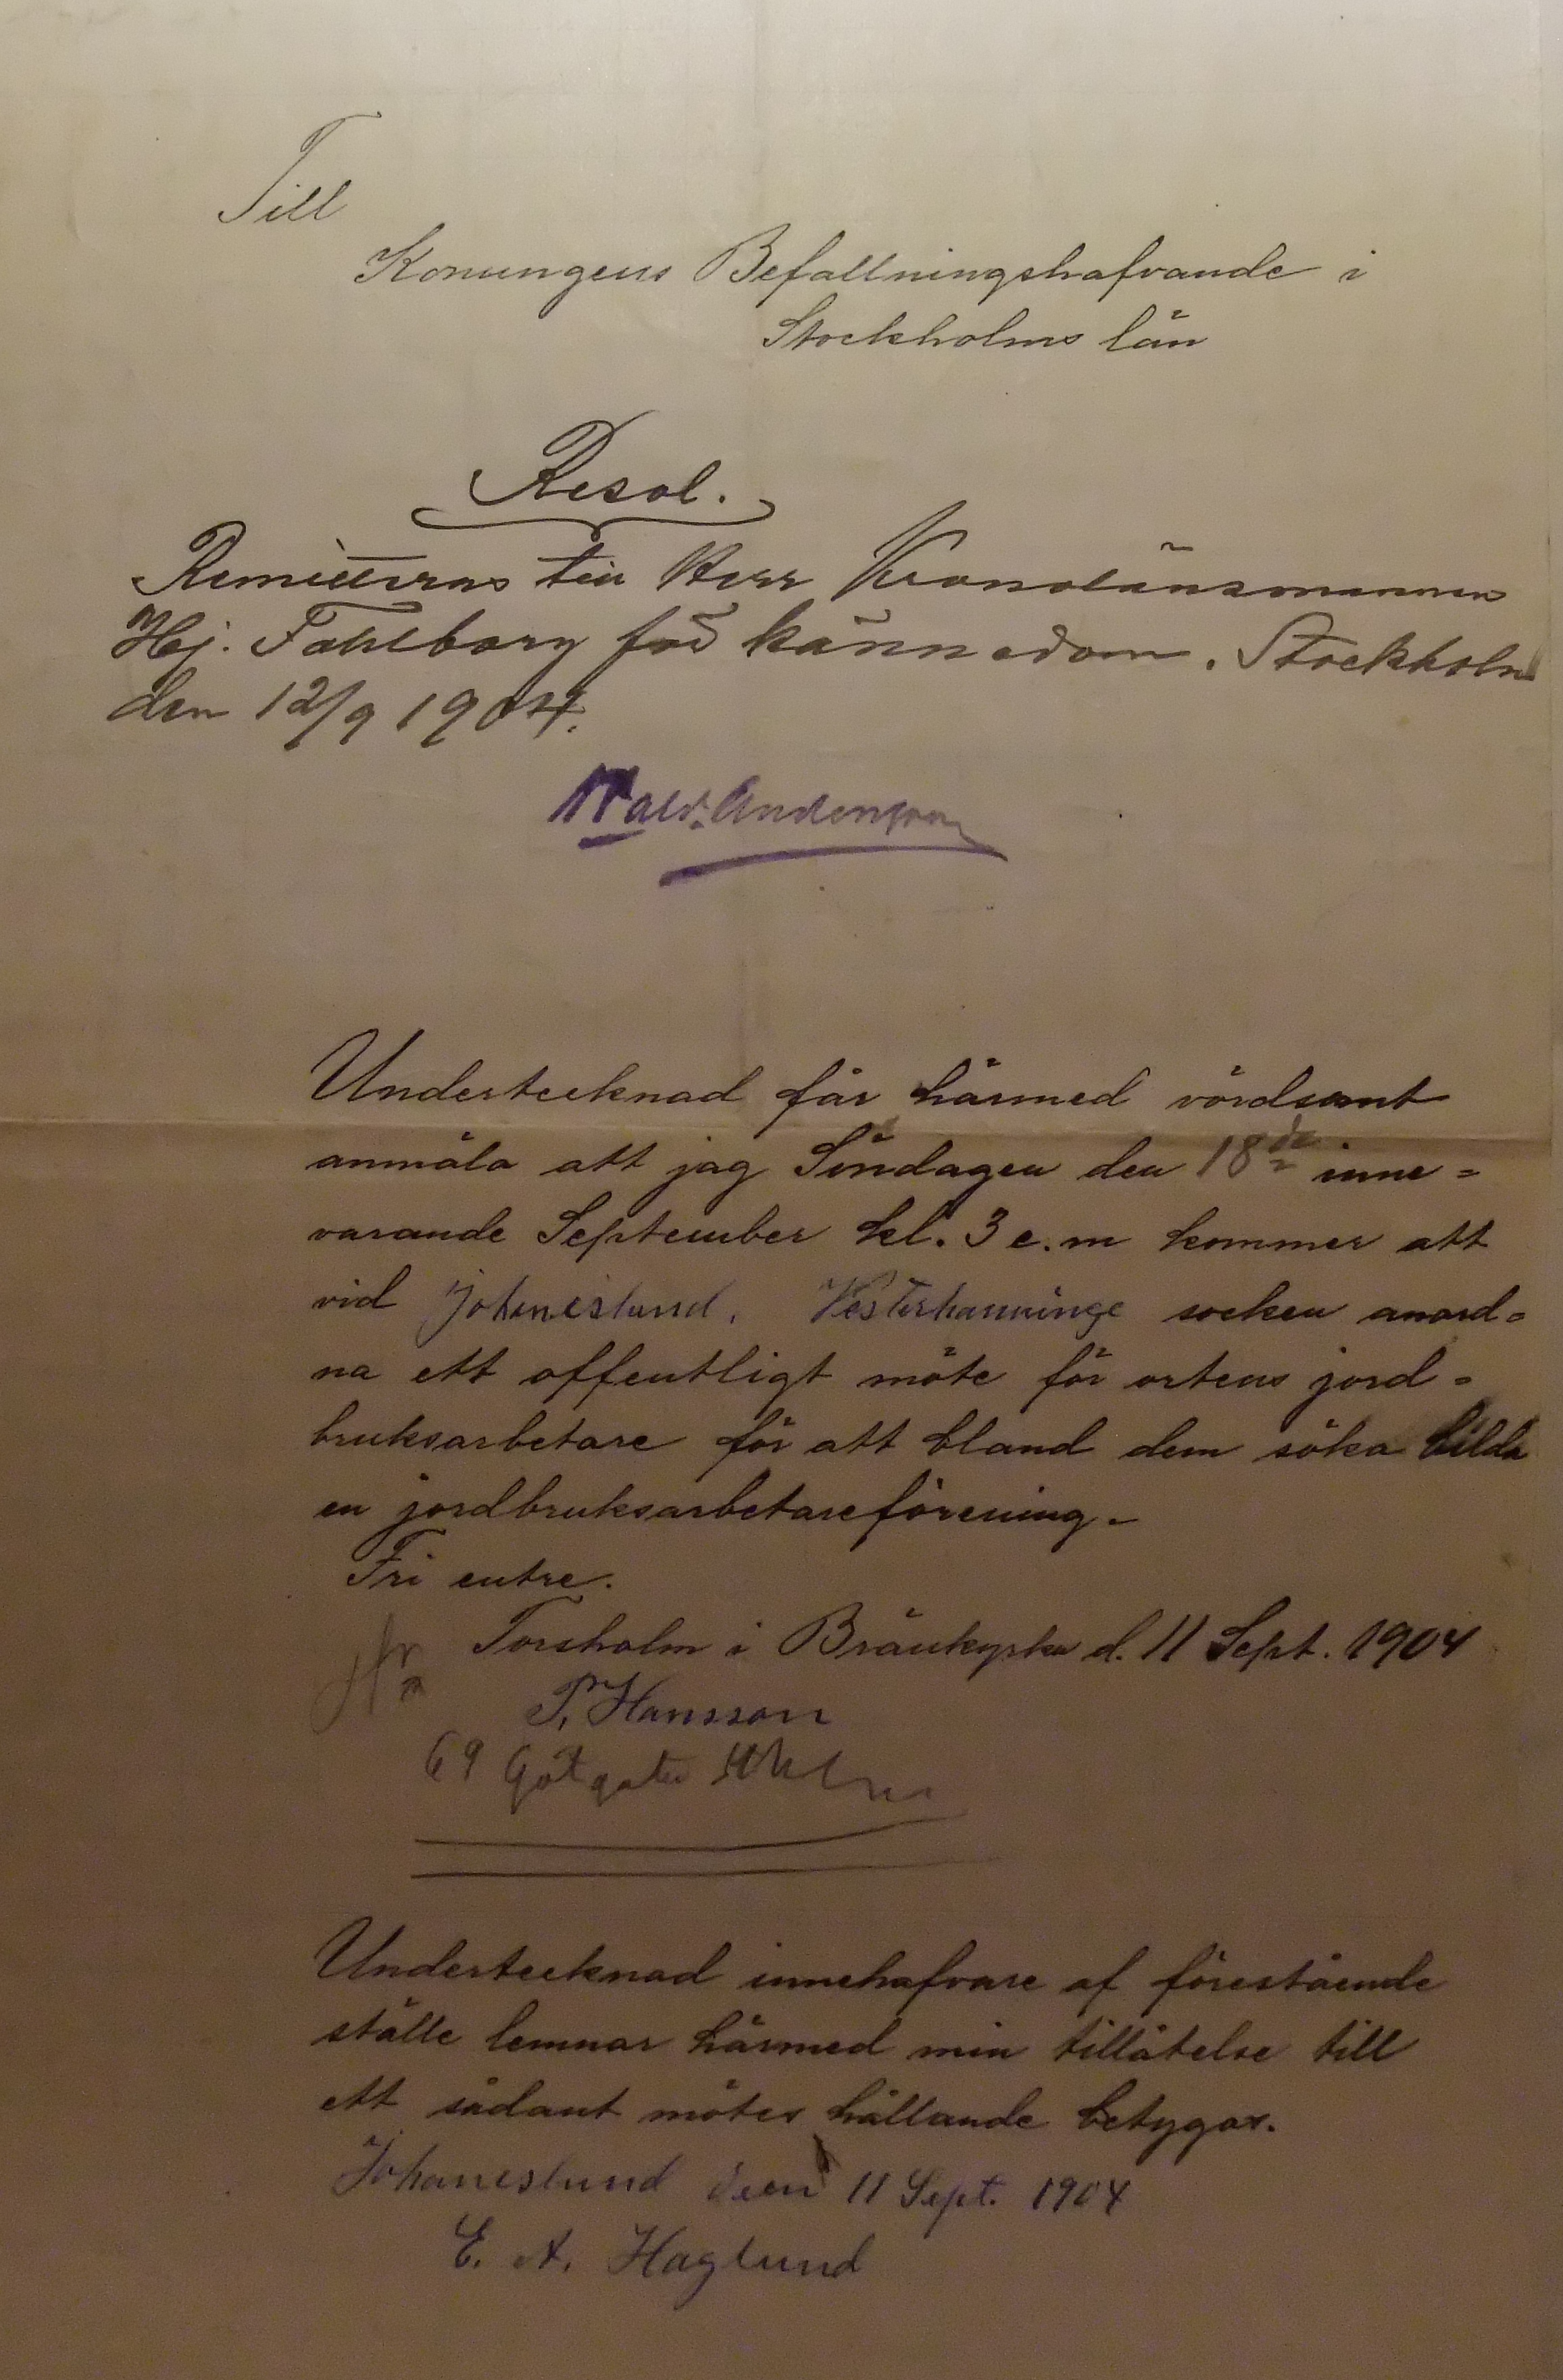 Till
Konungens Befallningshafvande i
Stockholms län
Resol.
Remitteras till Herr Kronolänsmannen
Hj. Fahlborg för kännedom. Stockholm
den 12/9 1904.
Wald. Anderson
Undertecknad får härmed vördsamt
anmäla att jag Söndagen den 18de inne=
varande September kl. 3 e.m kommer att
vid Johaneslund, Vesterhanninge socken anord=
na ett offentligt möte för ortens jord=
bruksarbetare för att bland dem söka bilda
en jordbruksarbetareförening.
Fri entre.
Torsholm i Bränkyrka d. 11 Sept. 1904
P. Hansson
69 Götgatan
Undertecknad innehafvare af förestående
ställe lemnar härmed min tillåtelse till
ett sådant mötes hållande betygar.
Johaneslund den 11 Sept. 1904
E. A. Haglund